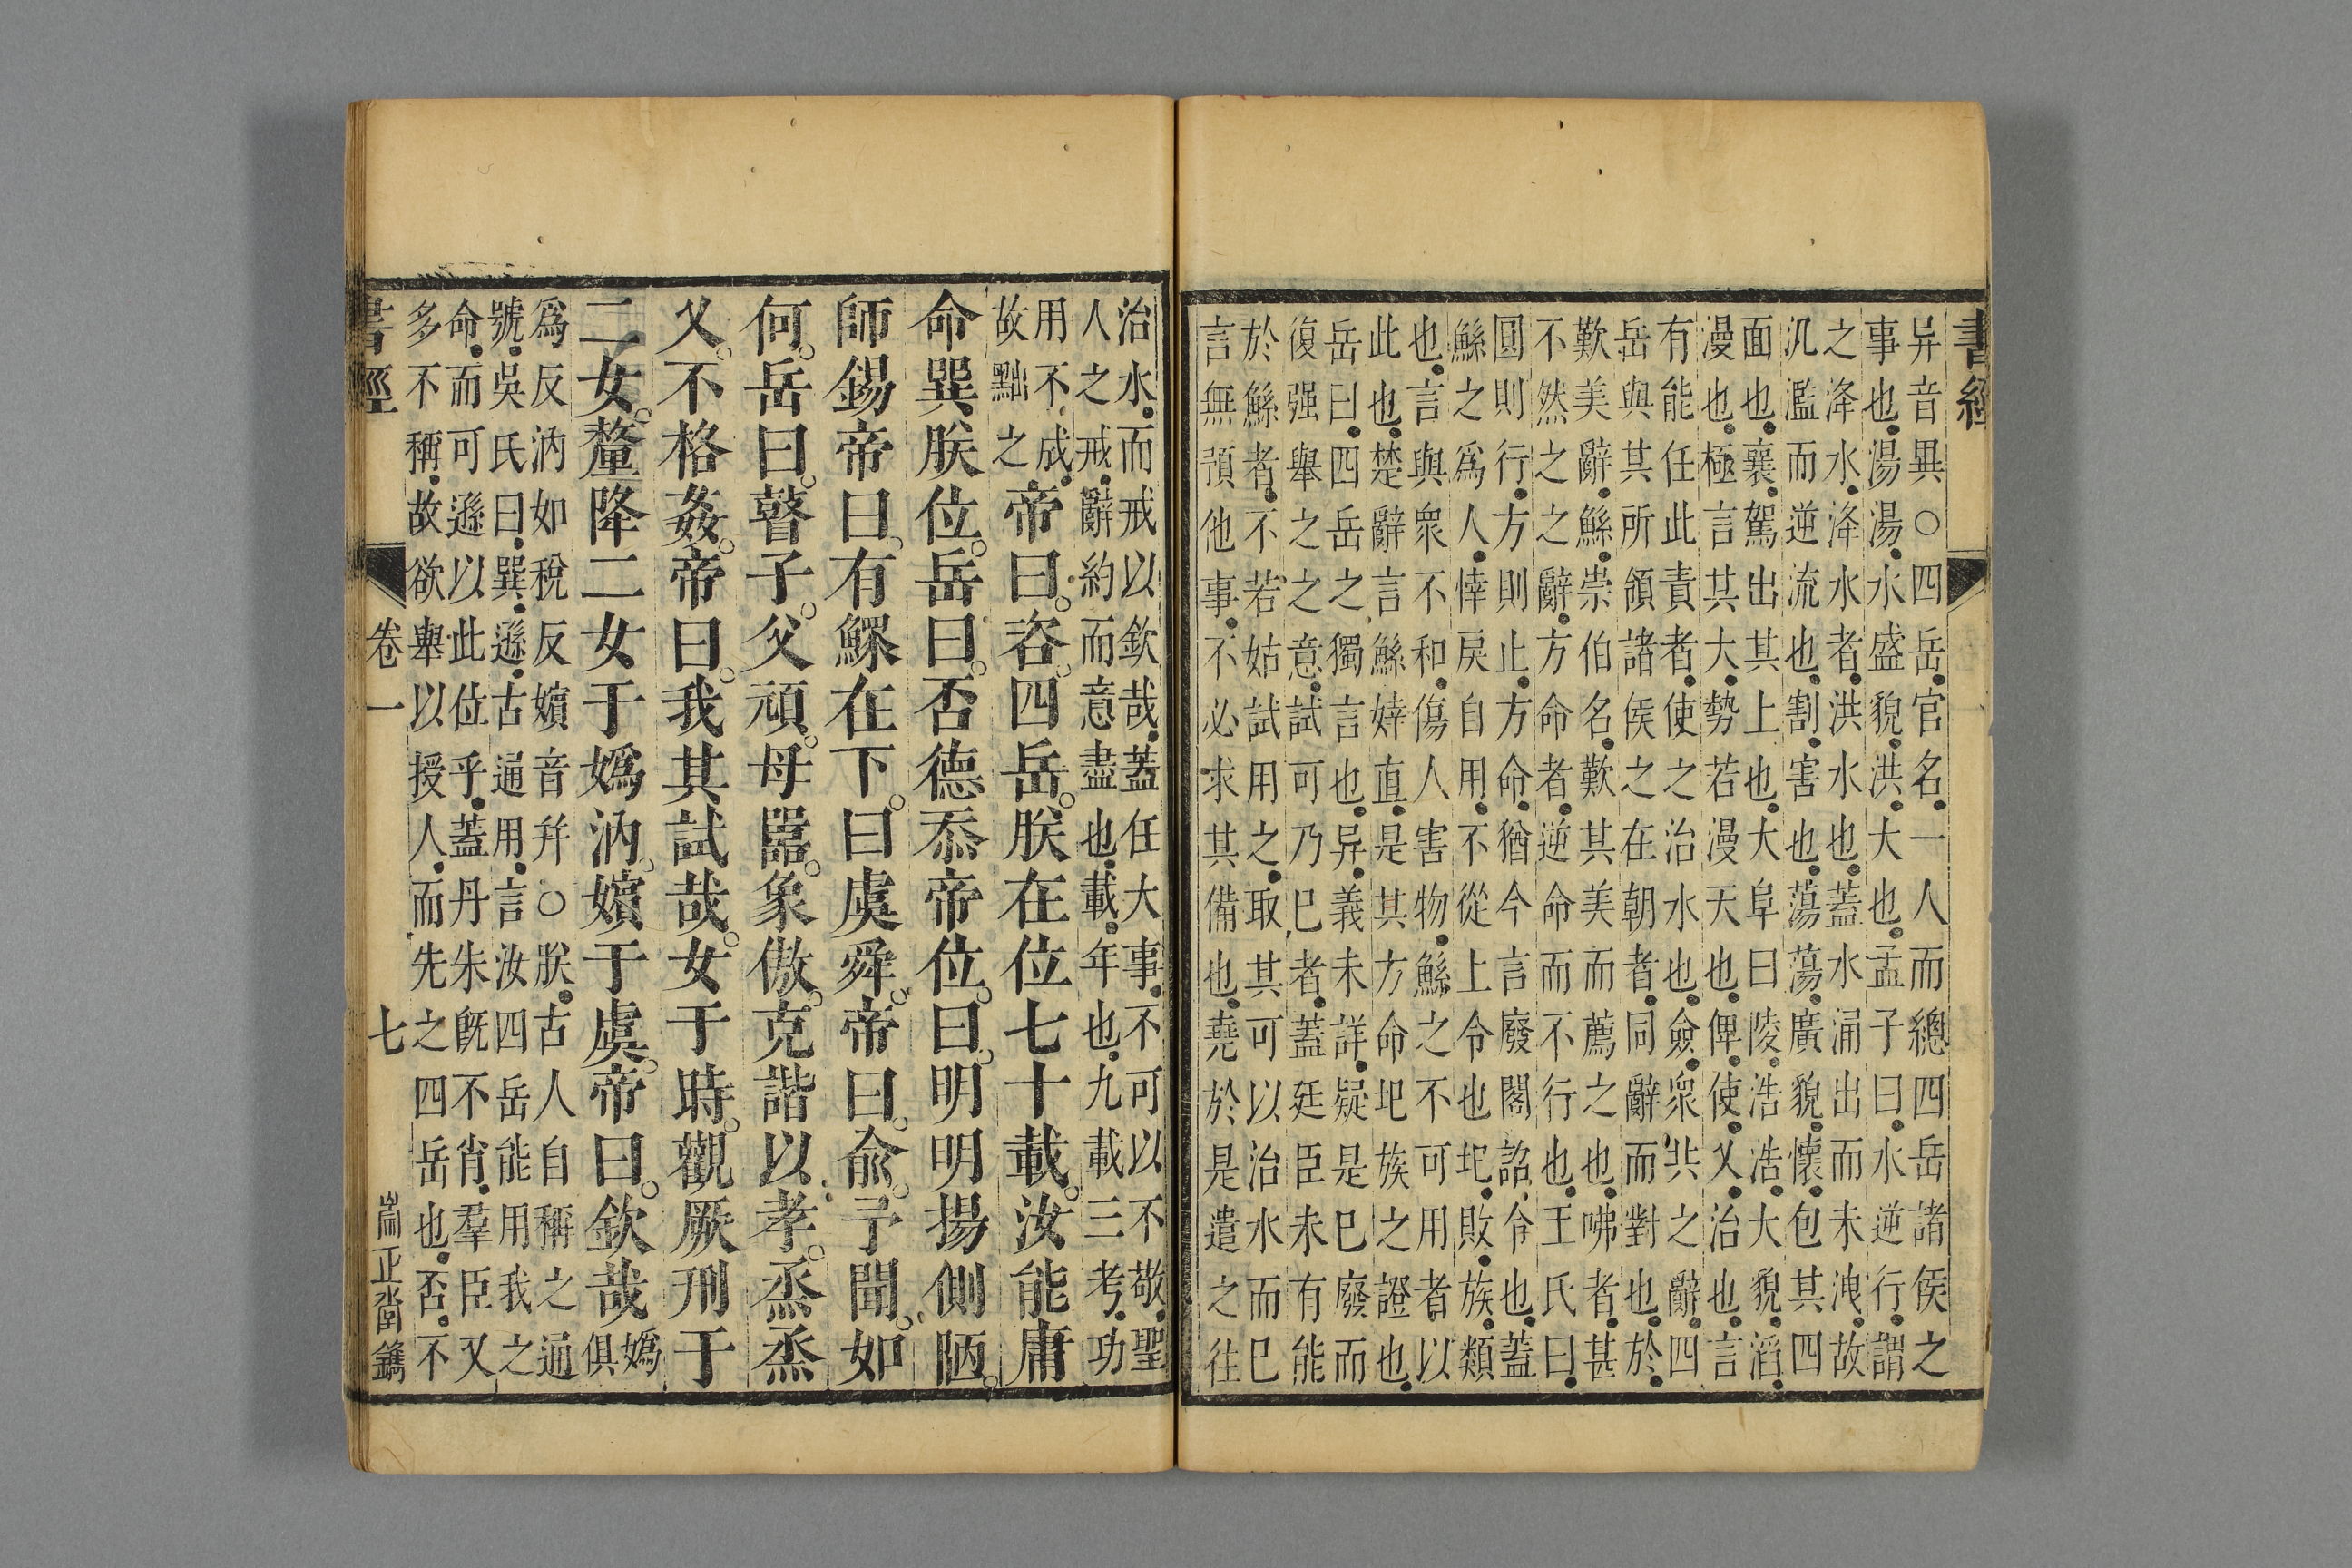 書經
异音異○四岳官名一人而總四岳諸侯之
事也湯湯水盛貌洪大也孟子曰水逆行謂
之洚水洚水者洪水也蓋水涌出而未洩故
汎濫而逆流也割害也蕩蕩廣貌懷包其四
面也襄駕出其上也大阜曰陵浩浩大貌滔
漫也極言其大勢若漫天也俾使乂治也言
有能任此責者使之治水也僉衆共之辭四
岳與其所領諸侯之在朝者同辭而對也於
歎美辭鯀崇伯名歎其美而薦之也咈者甚
不然之之辭方命者逆命而不行也王氏曰
圓則行方則止方命猶今言廢閣詔令也蓋
鯀之爲人悻戾自用不從上令也圮敗族類
也言與衆不和傷人害物鯀之不可用者以
此也楚辭言鯀婞直是其方命圮族之證也
岳曰四岳之獨言也异義未詳疑是已廢而
復强舉之之意試可乃已者蓋廷臣未有能
於鯀者不若姑試用之取其可以治水而已
言無預他事不必求其備也堯於是遣之往
治水而戒以欽哉蓋任大事不可以不敬聖
人之戒辭約而意盡也載年也九載三考功
用不成
故黜之
帝曰咨四岳朕在位七十載汝能庸
命巽朕位岳曰否德忝帝位曰明明揚側陋
師錫帝曰有鰥在下曰虞舜帝曰俞予聞如
何岳曰瞽子父頑母嚚象傲克諧以孝烝烝
乂不格姦帝曰我其試哉女于時觀厥刑于
二女釐降二女于嬀汭嬪于虞帝曰欽哉
嬀
俱
爲反汭如稅反嬪音弁○朕古人自稱之通
號吳氏曰巽遜古通用言汝四岳能用我之
命而可遜以此位乎蓋丹朱旣不肖羣臣又
多不稱故欲舉以授人而先之四岳也否不
書經
卷一
七
崇正堂鐫